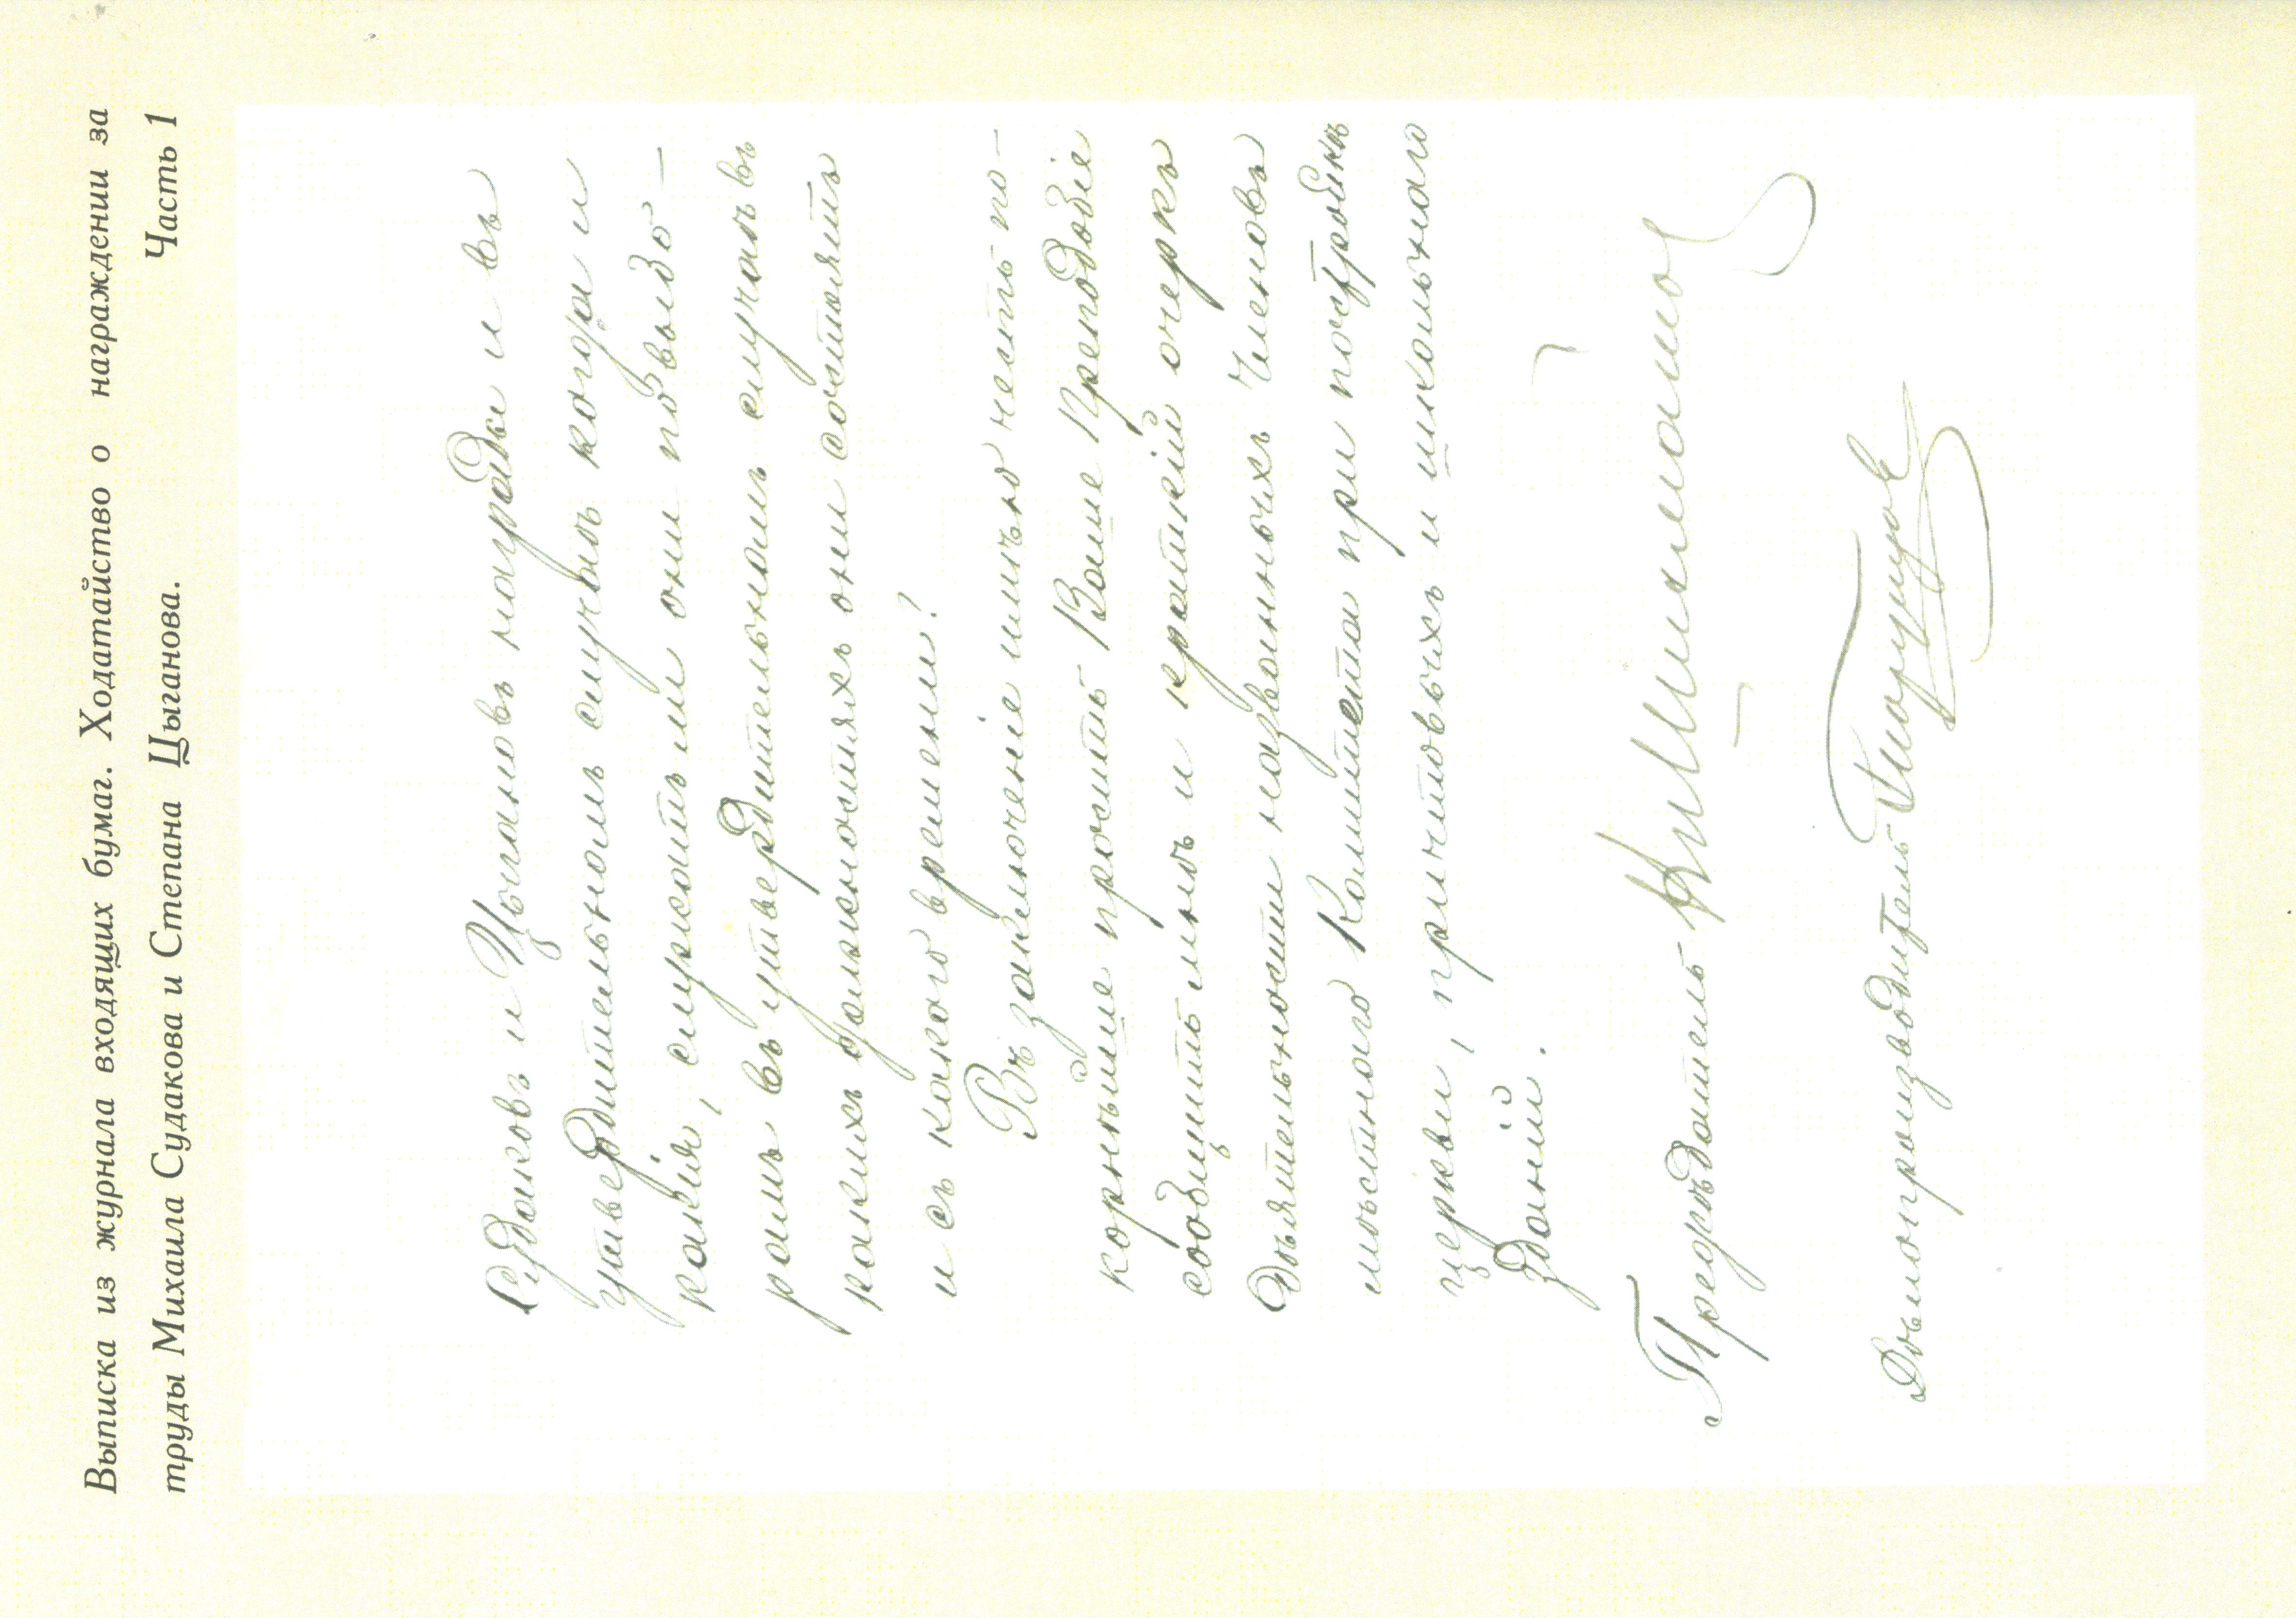 Выписка из журнала входящих бумаг. Ходатайство о награждении за
труды Михаила Судакова и Степана Цыганова. Часть 1
Судаковъ и Цыгановъ награды и въ
утвердительномъ случаѣ когда и
какія, служатъ ли они по выбо-
рамъ въ утвердительномъ случаѣ въ
какихъ должностяхъ они состоятъ
и съ какого времени?
Въ заключеніе имѣю честь по-
корнѣйше просить Ваше Преподобіе
сообщить мнѣ и краткій очеркъ
дѣятельности названныхъ членовъ
мѣстнаго Комитета при постройкѣ
церкви, причтовыхъ и школьнаго
зданій.
Предсѣдатель
Дѣлопроизводитель